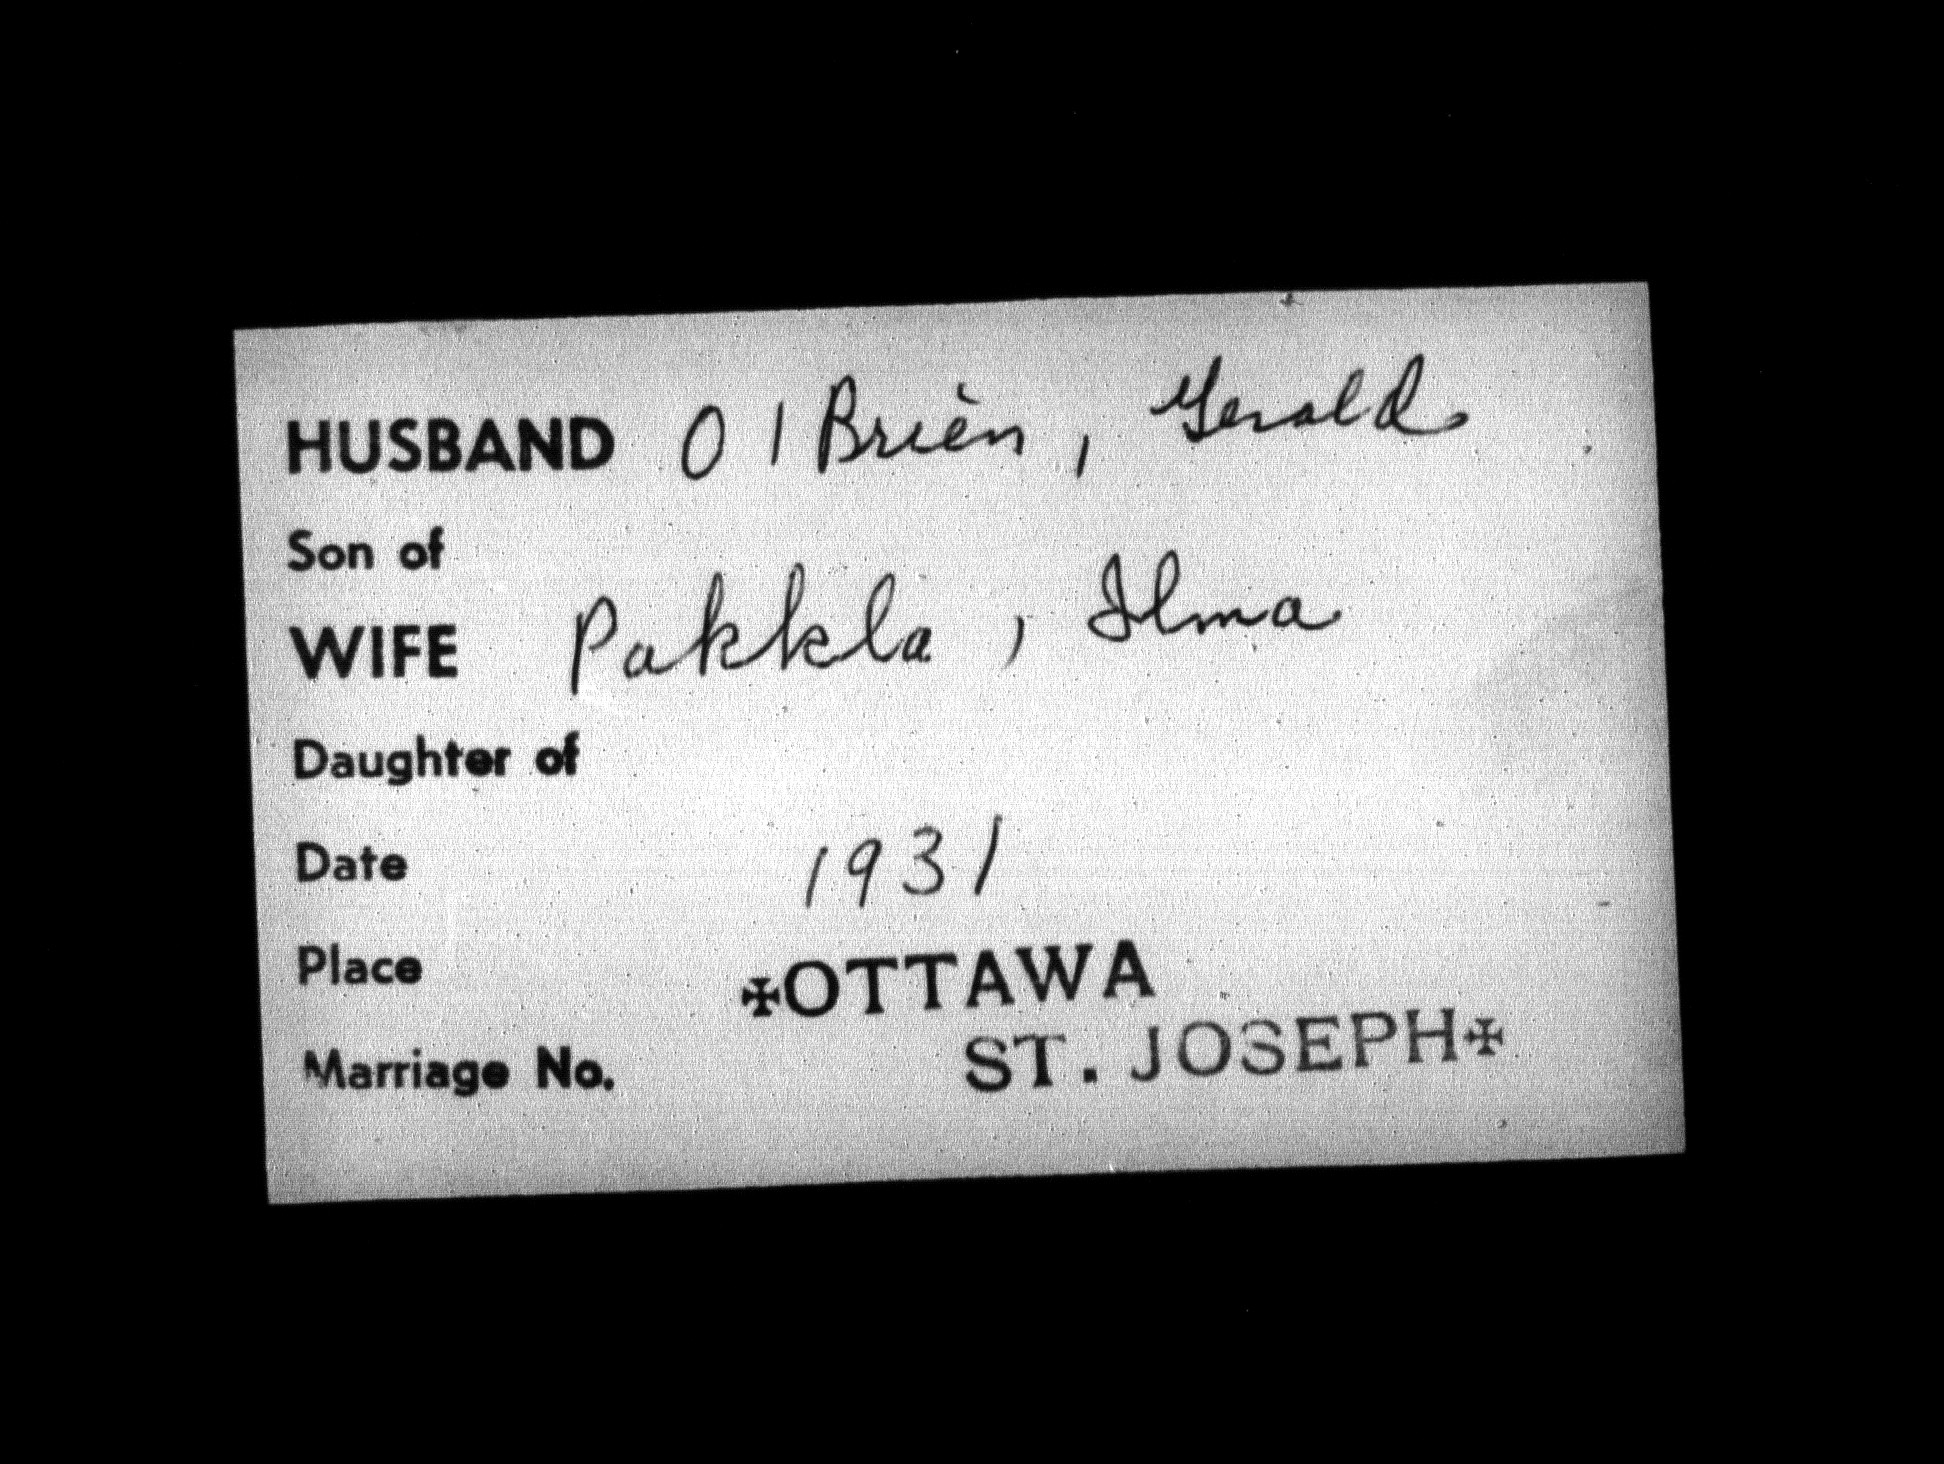 HUSBAND O'Brien, Gerald
Son of
WIFE Pakkla, Ilma
Daughter of
Date 1931
Place ✠OTTAWA
Marriage No. ST. JOSEPH✠